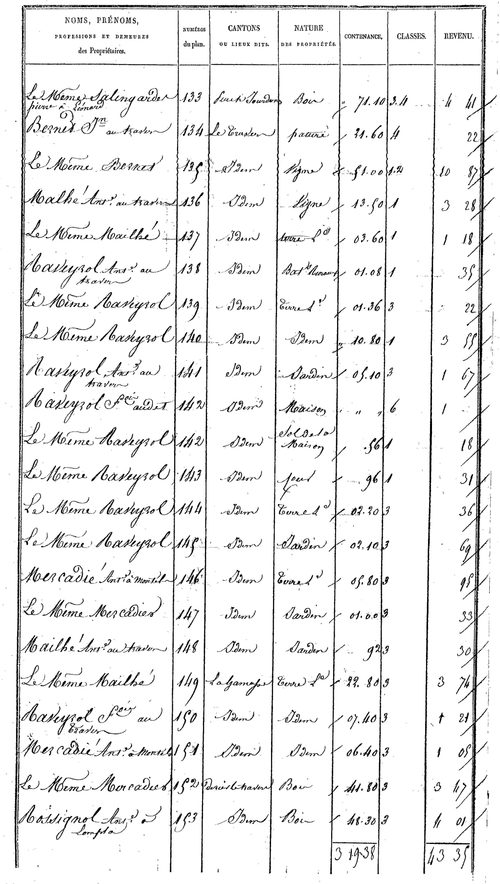 NOMS, PRÉNOMS, PROFESSIONS ET DEMEURES des Propriétaires. NUMÉROS du plan. CANTONS OU LIEUX DITS. NATURE DES PROPRIÉTÉS. CONTENANCE. CLASSES. REVENU.
Le Même 133 Bois 71.10 3.4 4 41
pierre à Léonard
Bernès Jn au travern 134 pature 21.60 4 22
Le Même Bernès 135 Idem Vigne 51.00 1.2 10 87
Malhé Ant.e au travern 136 Idem Vigne 13.50 1 3 28
Le Même Mailhé 137 Idem terre 03.60 1 1 18
Raveyrol Ant.e au travern 138 Idem 01.08 1 35
Le Même Raveyrol 139 Idem Terre 01.36 3 22
Le Même Raveyrol 140 Idem Idem 10.80 1 3 55
Raveyrol Ant.e au travern 141 Idem Jardin 05.10 3 1 67
Raveyrol 142 Idem Maison " " 6 1
Le Même Raveyrol 142 Idem Sol de la Maison .56 1 18
Le Même Raveyrol 143 Idem 96 1 31
Le Même Raveyrol 144 Idem Terre 02.20 3 36
Le Même Raveyrol 145 Idem Jardin 02.10 3 69
Mercadié Ant.e à 146 Idem Terre 05.80 3 95
Le Même Mercadier 147 Idem Jardin 01.00 3 33
Mailhé Ant.e au travern 148 Idem Jardin 92 3 30
Le Même Mailhé 149 Terre 22.80 3 3 74
Raveyrol au travern 150 Idem Idem 07.40 3 1 21
Mercadié Ant.e à 151 Idem Idem 06.40 3 1 05
Le Même Mercadier 152 Bois 41.80 3 3 47
Rossignol Ant.e à 153 Idem Bois 48.30 3 4 01
3 19 38 43 35